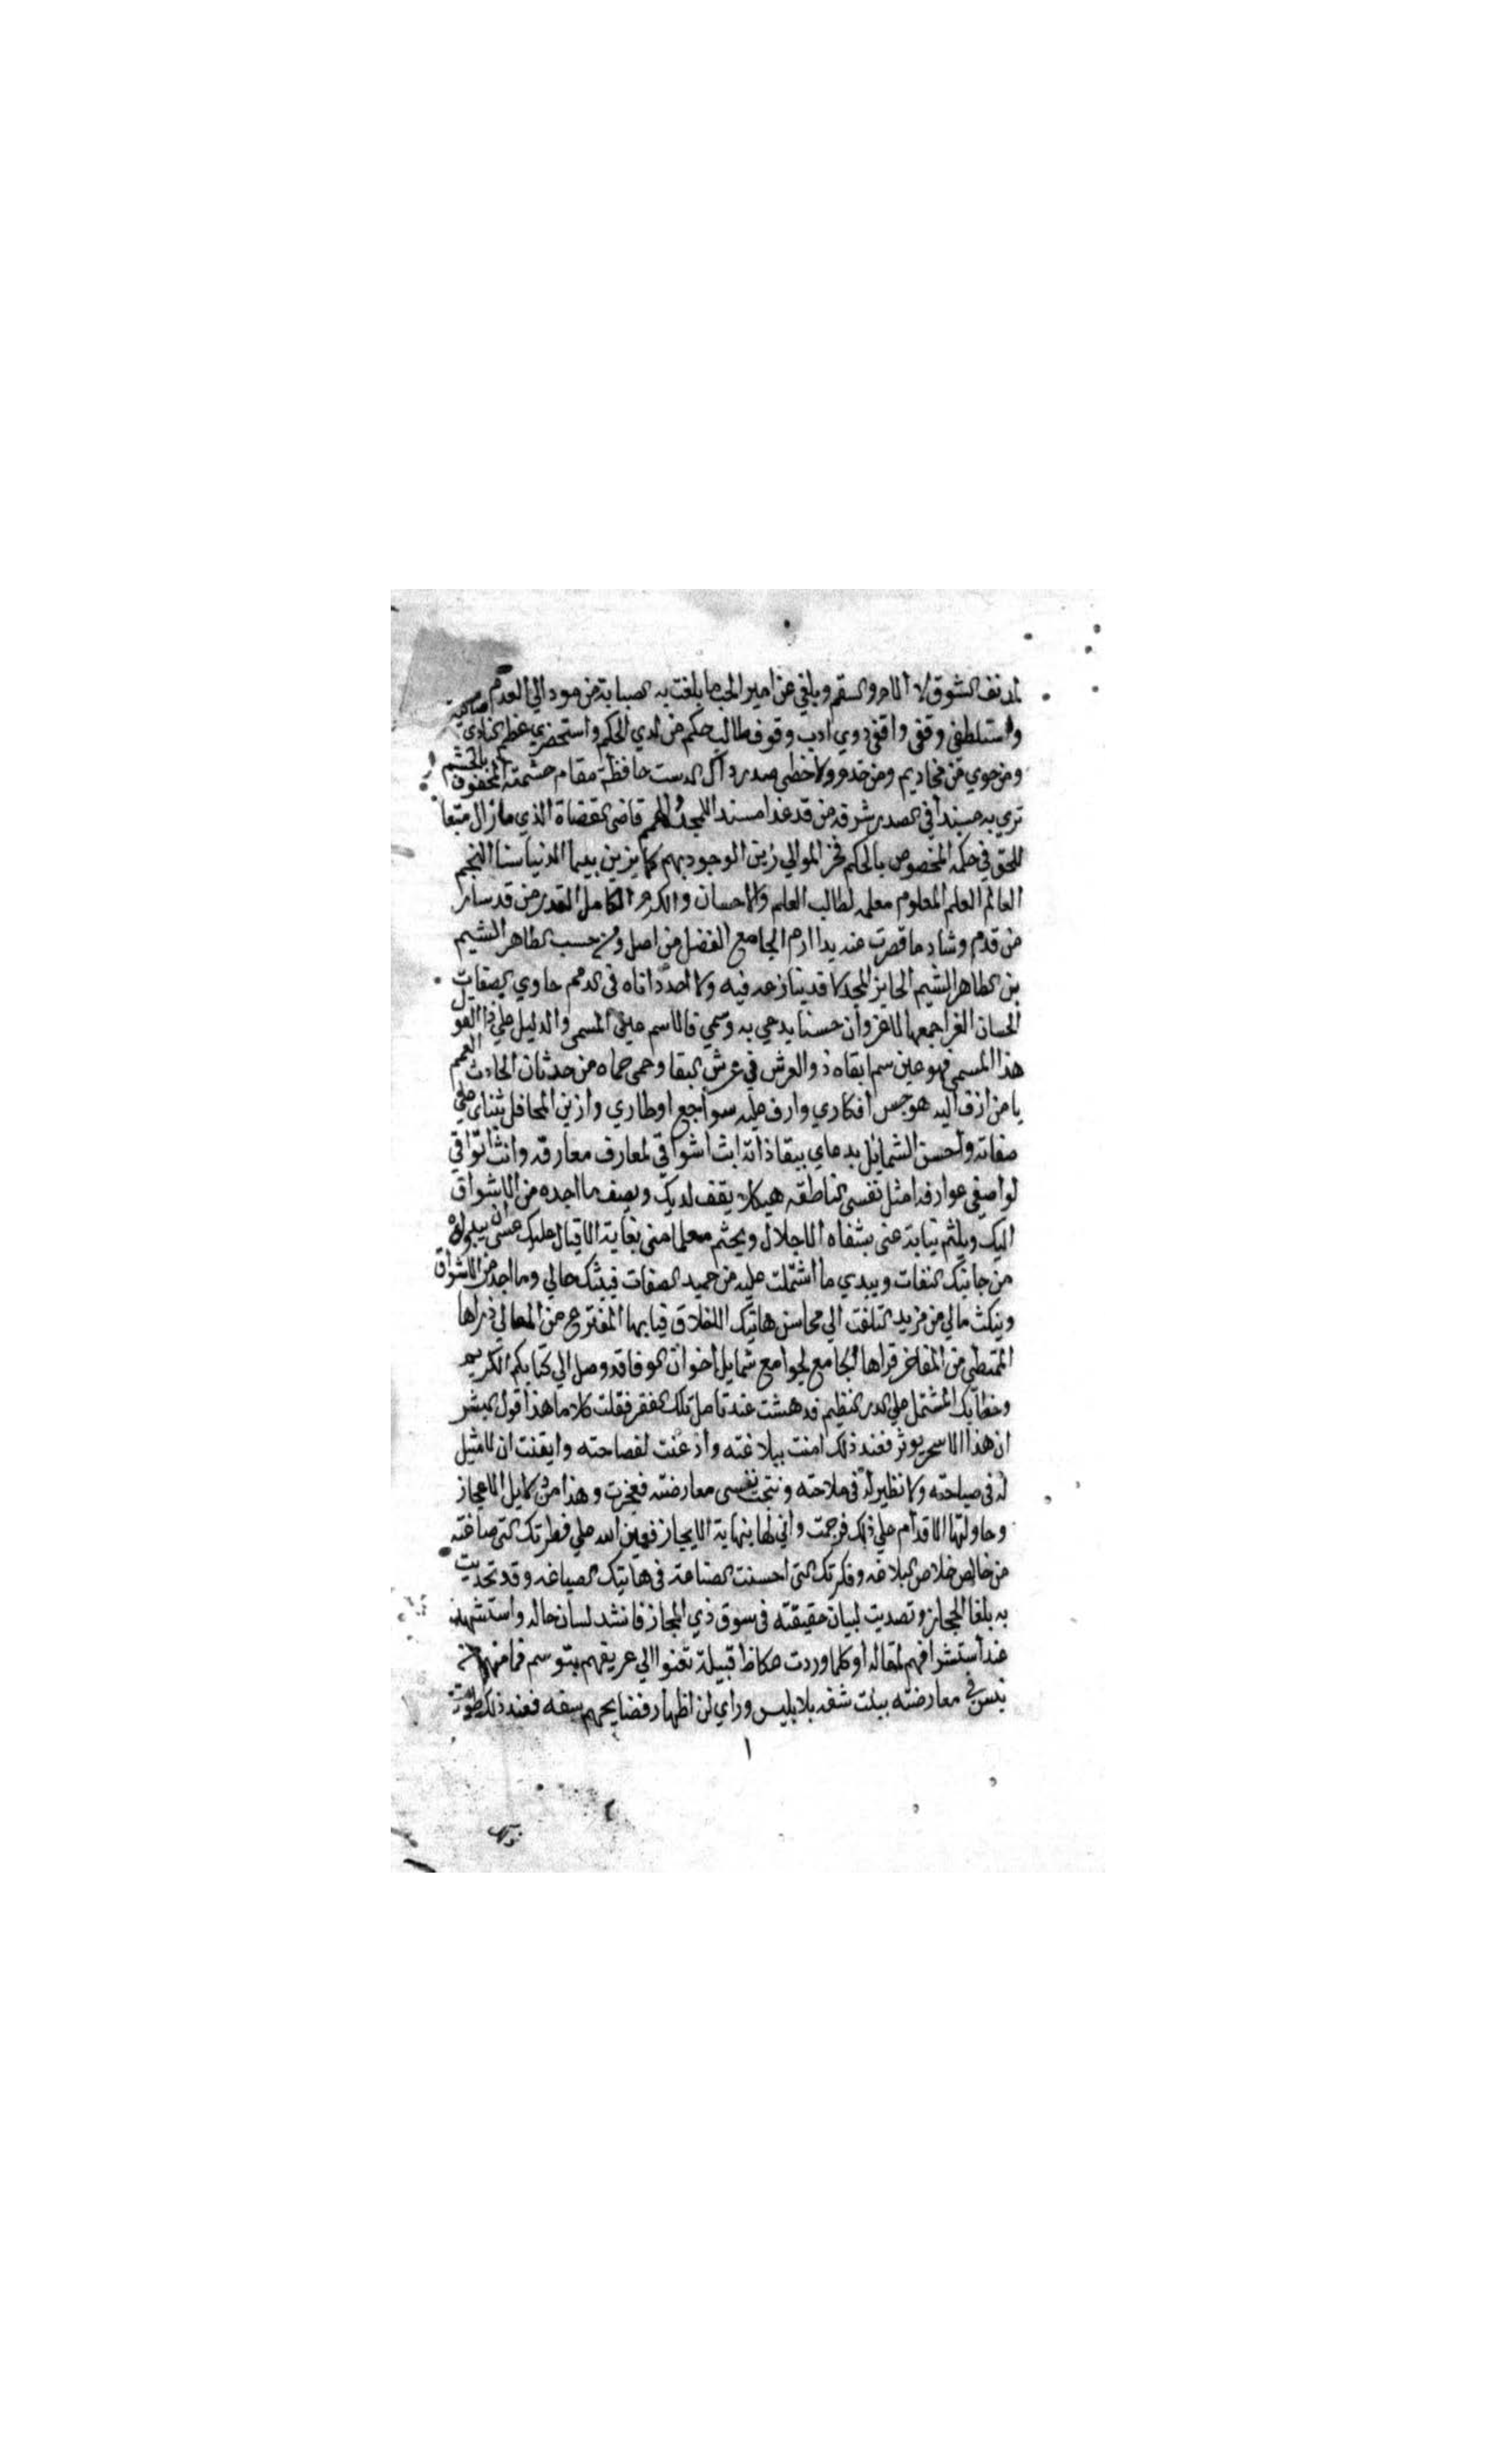 لمدنف الشوق لا آلام والسقم وبلغي عن امير الحب ما بلغت به الصبابة من مود الي العدم
واستلطفي وقفي واقفي ذوي ادب وقوف طالب حكم من لدي الحكم واستحضري عظم النادي
ومن حوي من مخاديم ومن خدم ولاحظي صدر ذاك الدست حافظة مقام حشمته المحفوف بالحشم
تري به مسندا في الصدر شرفه من قد غدا مسندا للمجد والهمم قاضي القضاة الذي ما زال متبعا
للحق في حكمه المخصوص بالحكم فخر الموالي زين الوجود بهم كما يزين بديما الدنيا سنا النجم
العالم العلم المعلوم معلمه لطالب العلم والاحسان والكرم الكامل القدر من قد سار
من قدم وشاد ما قصرت عنه يدا ارم الجامع الفضل من اصل ومن حسب الطاهر الشيم
بن الطاهر الشيم الحايز المجد لا قد ينازعه فيه ولا احد داناه في الدمم حاوي الصفات
الحسان الغر اجمعها لاغرو ان حسنا يدعي به وسمي فالاسم عين المسمي والدليل علي ذا القول
هذا المسمي فهو عين سم ابقاه ذو العرش في عرش البقا وحمي حماه من حدثان الحادث العمم
يا من ازف اليه هوجس افكاري وارف عليه سواجع اوطاري وازين المحافل بثناي علي
صفاته واحسن الشمايل بدعاي ببقا ذاته ابث اشواقي لمعارف معارفه وانث اتواقي
لواصفي عوارفه امثل نفسي الناطقه هيكلا يقف لديك ويصف ما اجده من الاشواق
اليك ويلثم نيابة عني بشفاه الاجلال ويجثم معلما مني بغاية الاقبال عليك عسي ان يبدو له
من جانبك التفات ويبدي ما اشتملت عليه من حميد الصفات فيبثك حالي وما اجد من الاشواق
وينكث مالي من مزيد التلفت الي محاسن هاتيك الاخلاق فيا ايها المفترع من المعالي ذراها
الممتطي من المفاخر قراها الجامع لجوامع شمايل اخوان الوفا قد وصل الي كتابكم الكريم
وخطابك المشتمل علي الدر النظيم فدهشت عند تامل تلك الفقر فقلت كلا ما هذا قول البشر
ان هذا الا سحر يوثر فعند ذلك امنت ببلاغته واذعنت لفصاحته وايقنت ان لا مثيل
له في صباحته ولا نظير له في ملاحته ونتجت نفسي معارضته فعجزت وهذا من دلايل الاعجاز
وحاولتها الاقدام علي ذلك فرجمت واني لها بنهاية الايجاز فعين الله علي فطرتك التي صاغته
من خالص خلاص البلاغه وفكرتك التي احسنت الصناعة في هاتيك الصياغه وقد تحديت
به بلغا الحجاز وتصديت لبيان حقيقته في سوق ذي المجاز فانشد لسان حاله واستشهد
عند استشرافهم لمقاله او كلما وردت عكاظ قبيلة بعثوا الي عريفهم يتوسم فما منهم
نبس في معارضته ببنت شفه بلا بليس وراي لن اظهار فضايحهم سفه فعند ذلك
١